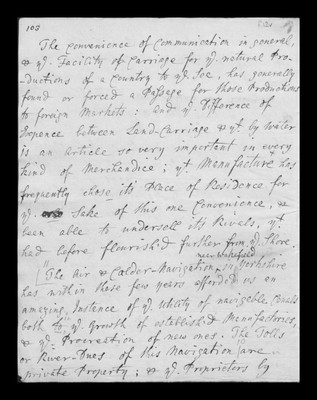 103
The Convenience of Communication in general,
& yͤ. Facility of Carriage for yͤ. natural Pro-
-ductions of a Country to yͤ. Sea, has generally
found or forced a Passage for those Productions
to foreign Markets: and yͤ. Difference of
Expence between Land-Carriage & yͭ by Water
is an article so very important in every
kind of Merchandice; yͭ Manufacture has
frequently chose its Place of Residence for
yͤ. Sake of this one Convenience, &
been able to undersell its Rivals, yͭ
had before flourish'd further from yͤ. Shore.
near Wakefield
The Air & Calder-Navigation in Yorkshire
has within these few years afforded us an
amazing Instance of yͤ. Utility of navigable Canals
both to yͤ. growth of establish'd Manufactories,
& yͤ. Procreation of new ones. The Tolls
or River-Dues of this Navigation are
private Property; & yͤ. Proprietors by